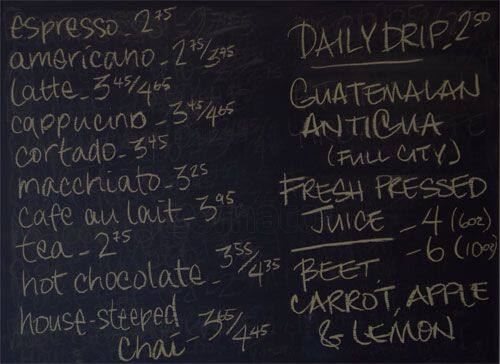 espresso - 2.75
americano - 2.75/3.75
latte - 3.45/4.65
cappucino - 3.45/4.65
cortado - 3.45
macchiato - 3.25
cafe au lait - 3.95
tea - 2.75
hot chocolate - 3.55/4.35
house-steeped
chai - 3.65/4.45
DAILY DRIP - 2.50
GUATEMALAN
ANTIGUA
(FULL CITY)
FRESH PRESSED
JUICE - 4 (6oz)
- 6 (10oz)
BEET,
CARROT, APPLE
& LEMON